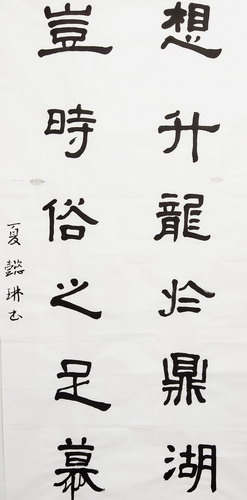 想升龍於鼎湖
豈時俗之足慕
夏懿琳书